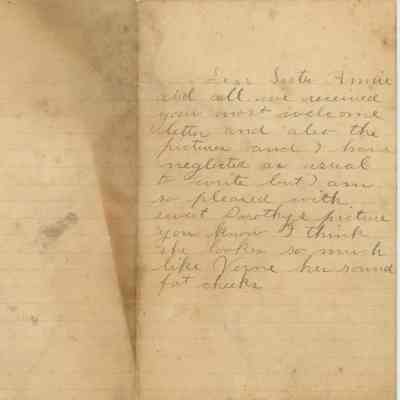 Dear Sister Annie
and all we received
your most welcome
letter and also the
pictures and I have
neglected as usual
to write but I am
so pleased with
sweet Dorothys picture
you know I think
she lookes so much
like Verne her round
fat cheeks